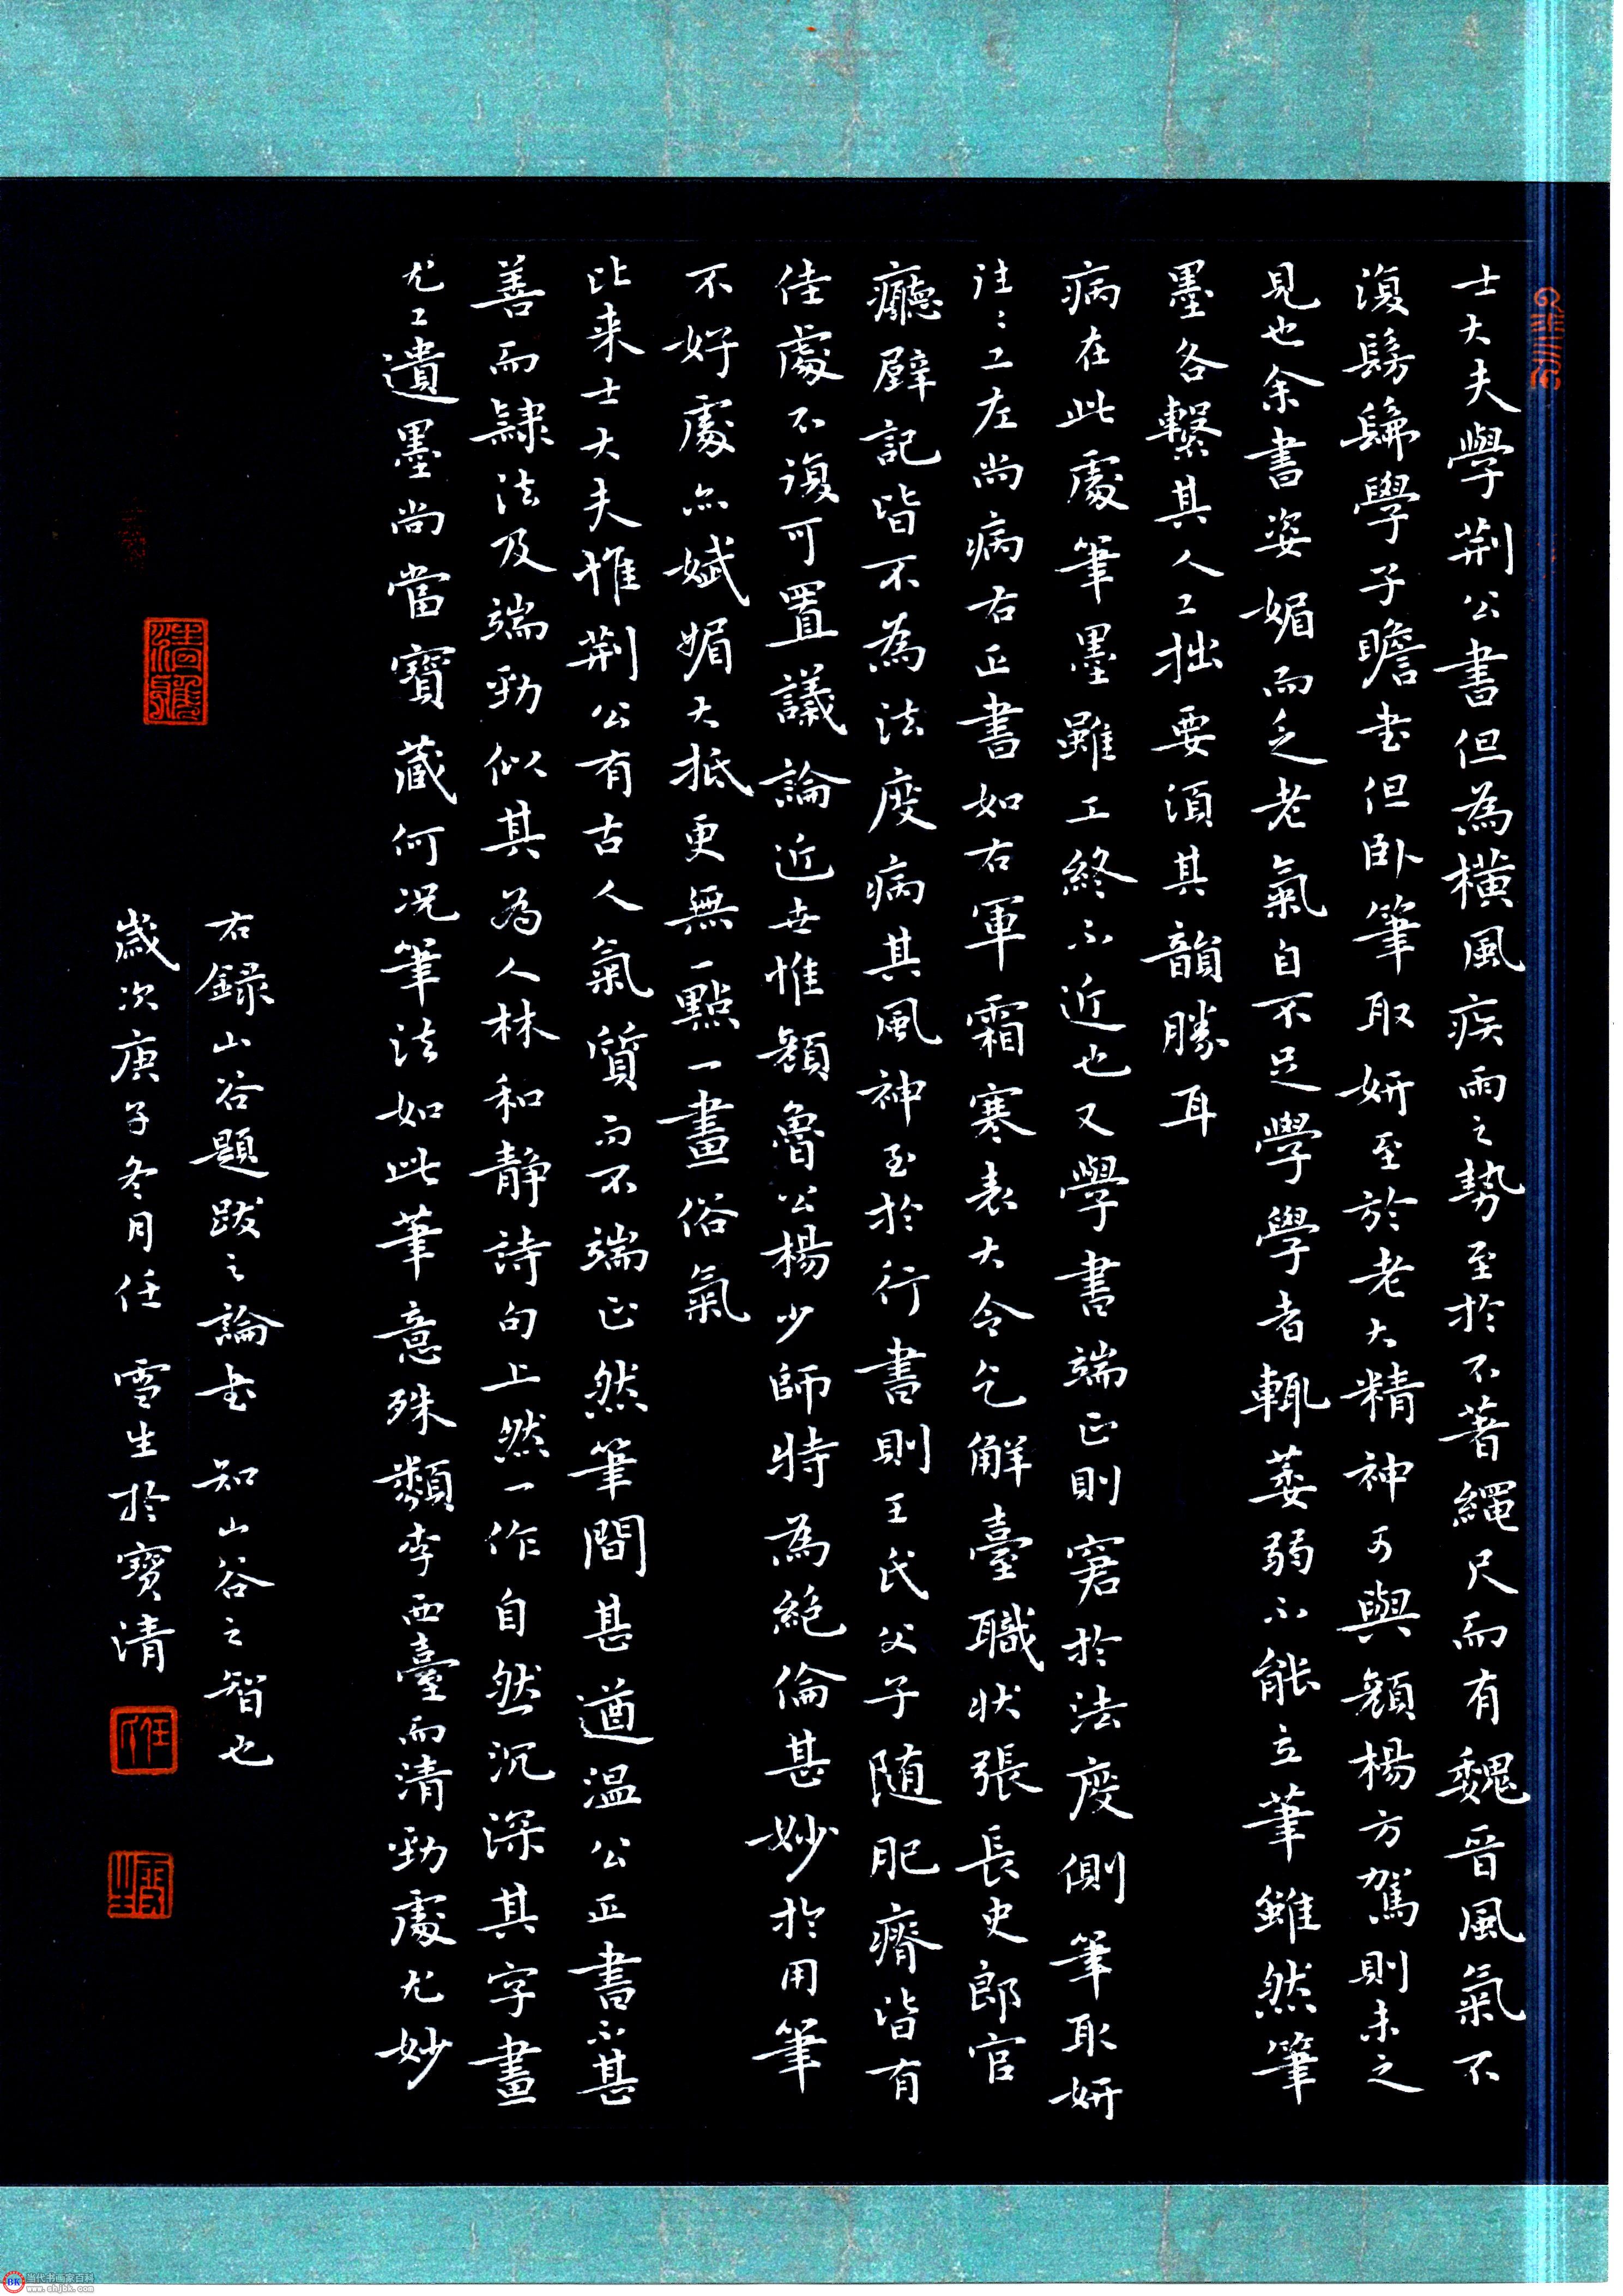 士大夫學荊公書但為橫風疾雨之勢至於不著繩尺而有魏晉風氣不
復髣髴學子瞻書但臥筆取妍至於老大精神可與顏楊方駕則未之
見也余書姿媚而乏老氣自不足學學者輒萎弱不能立筆雖然筆
墨各繫其人工拙要須其韻勝耳
病在此處筆墨雖工終不近也又學書端正則窘於法度側筆取妍
往往工左尚病右正書如右軍霜寒表大令乞解臺職狀張長史郎官
廳壁記皆不為法度病其風神至於行書則王氏父子隨肥瘠皆有
佳處不復可置議論近世惟顏魯公楊少師特為絕倫甚妙於用筆
不好處亦嫵媚大抵更無一點一畫俗氣
比來士大夫惟荊公有古人氣質而不端正然筆間甚遒溫公正書不甚
善而隸法及端勁似其為人林和靜詩句上然一作自然沉深其字畫
尤工遺墨尚當寶藏何況筆法如此筆意殊類李西臺而清勁處尤妙
右錄山谷題跋之論書 知山谷之智也
歲次庚子冬月任雪生於寶清
任
雪生
当代书画家百科
www.shjbk.com
BK